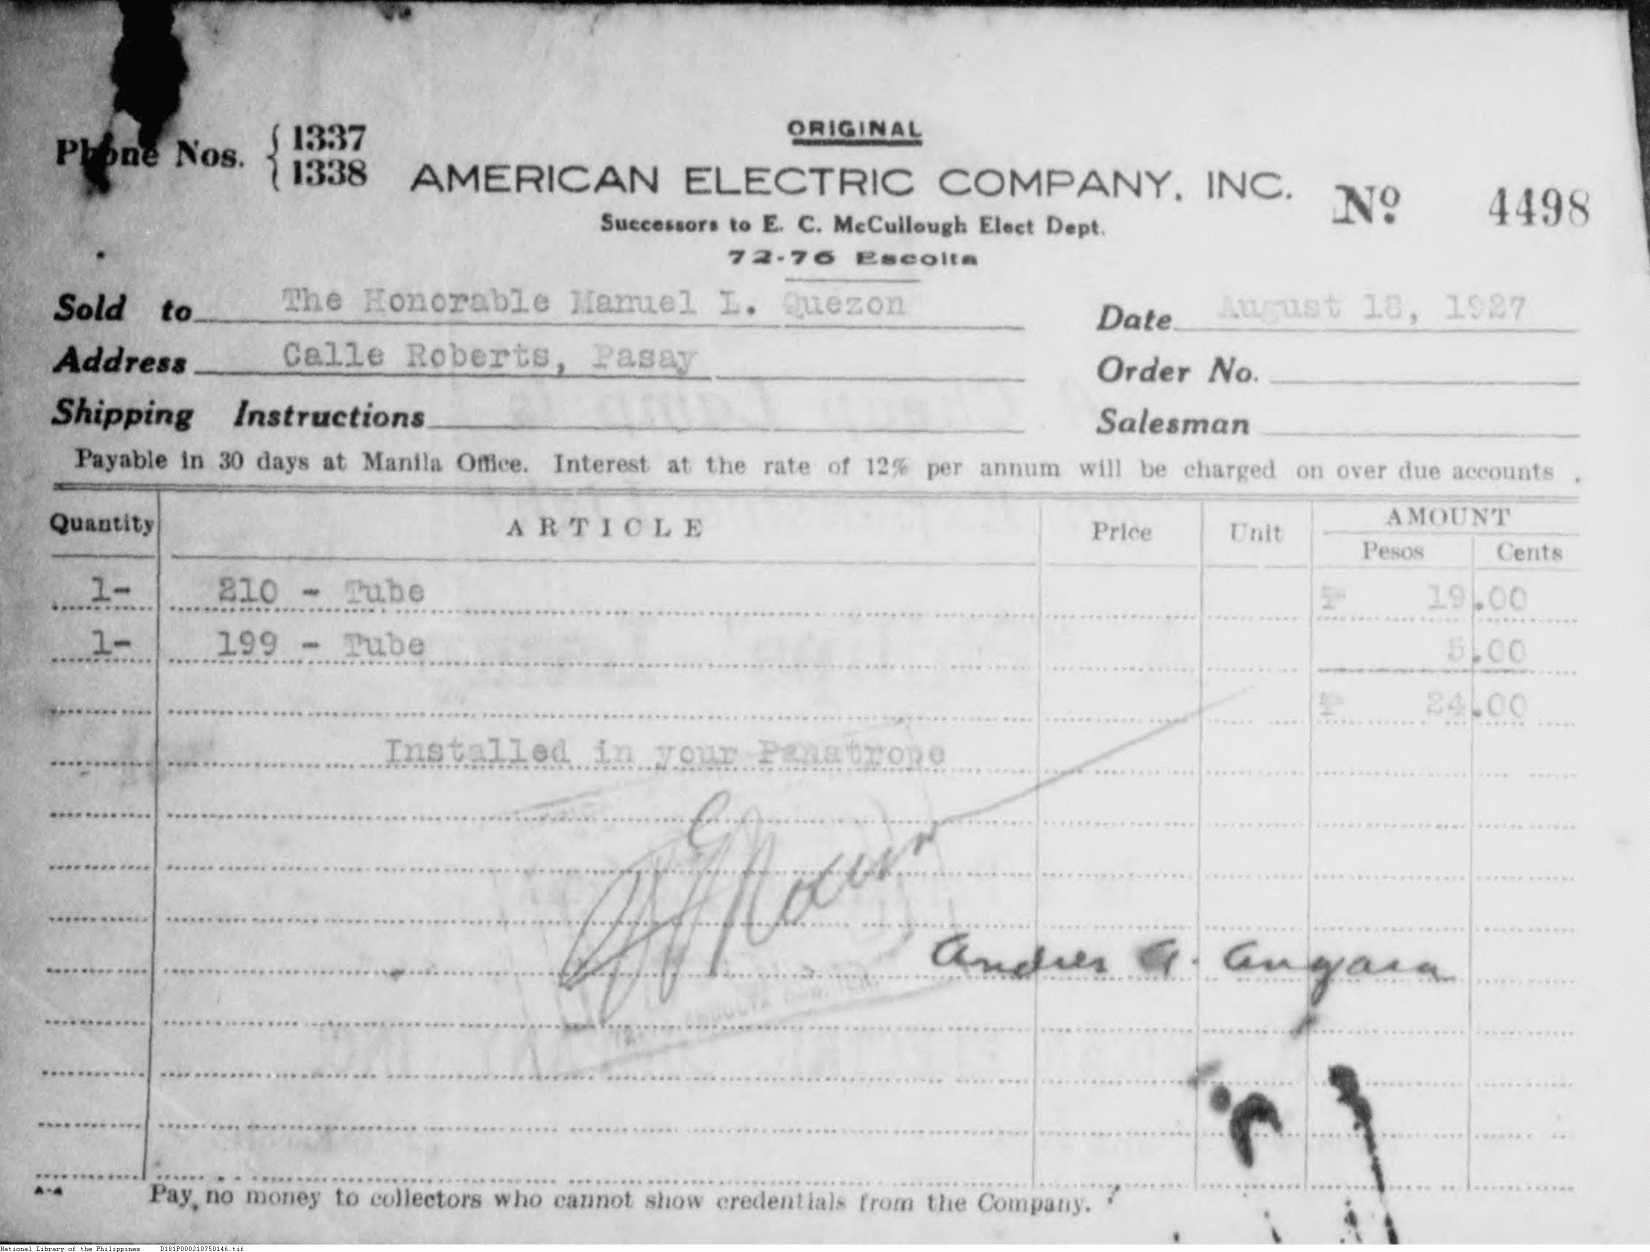 ORIGINAL
Phone Nos. { 1337
1338
AMERICAN ELECTRIC COMPANY, INC.
Nº 4498
Successors to E. C. McCullough Elect Dept.
72-76 Escolta
Sold to The Honorable Manuel L. Quezon
Date August 18, 1927
Address Calle Roberts, Pasay
Order No.
Shipping Instructions
Salesman
Payable in 30 days at Manila Office. Interest at the rate of 12% per annum will be charged on over due accounts .
Quantity ARTICLE Price Unit AMOUNT
Pesos Cents
1- 210 - Tube ₱ 19.00
1- 199 - Tube 5.00
₱ 24.00
Installed in your Panatrope
Andres A. Angara
A-A Pay no money to collectors who cannot show credentials from the Company.
National Library of the Philippines D181P000210750146.tif